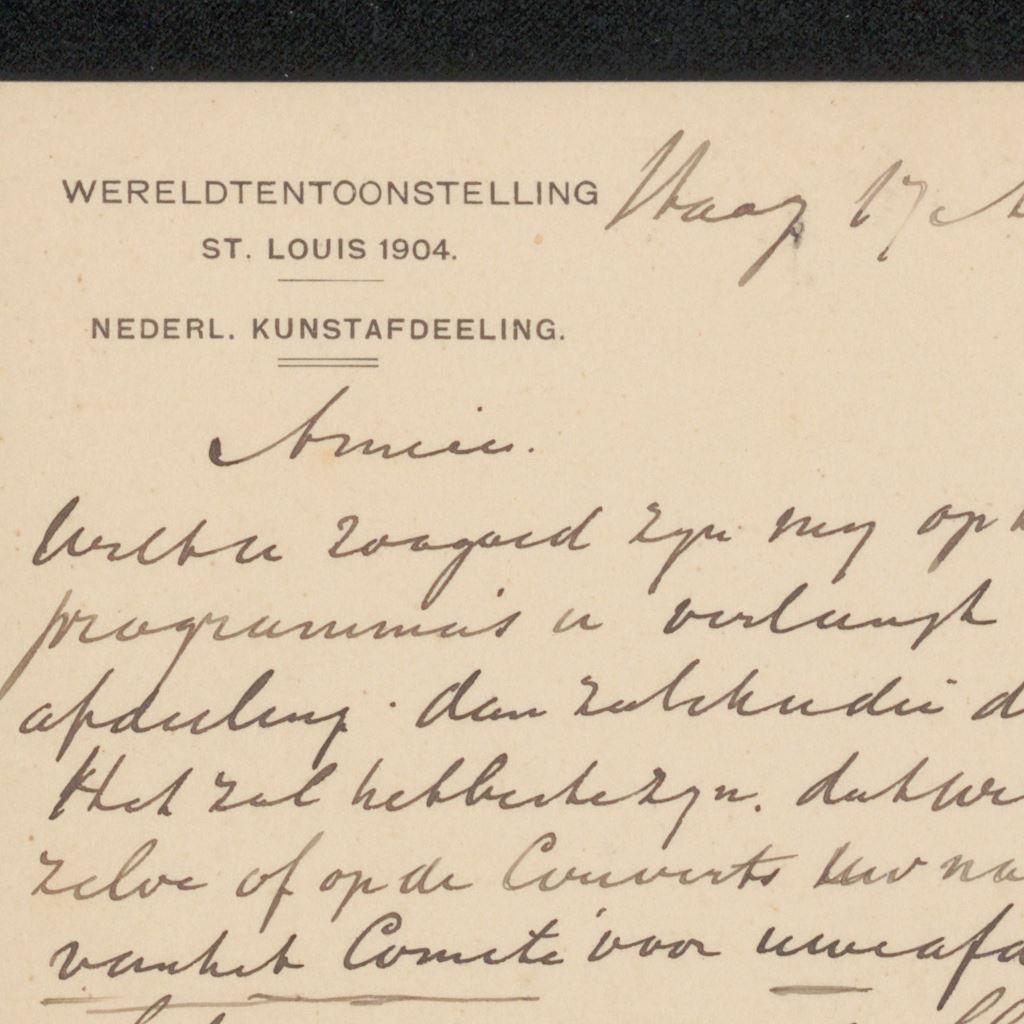 WERELDTENTOONSTELLING
ST. LOUIS 1904.
NEDERL. KUNSTAFDEELING.
Haag 17
Amice.
Wilt u zoo goed zyn my op
programma's u verlangt
afdeeling. dan zal ik u die
Het zal het beste zyn. dat we
zelve of op de Couverts Uw na
van het Comité voor uwe afd